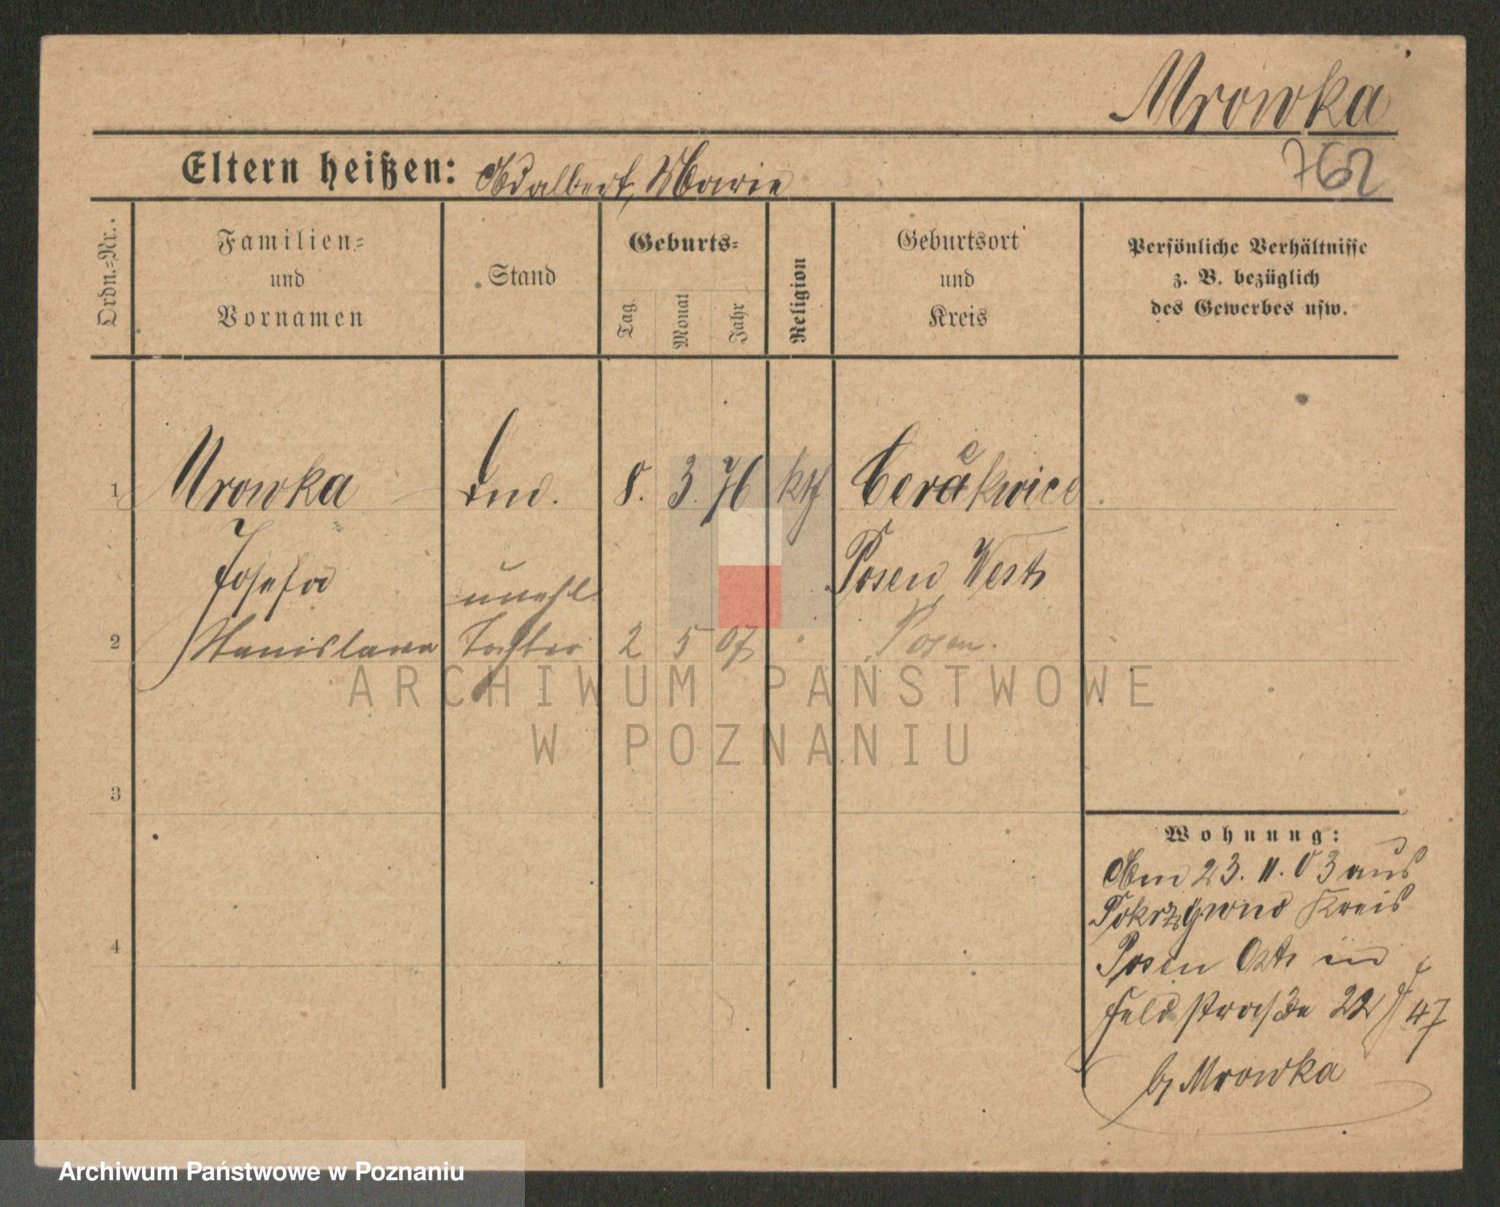 Mrowka
762
Eltern heißen: Adalbert, Marie
Ordn.-Nr.
Familien-
und
Vornamen
Stand
Geburts-
Tag
Monat
Jahr
Religion
Geburtsort
und
Kreis
Persönliche Verhältnisse
z. B. bezüglich
des Gewerbes usw.
1 Mrowka 8. 3. 76 kth Cerekwice
Josefa Posen West
unehl.
2 Stanislawa Tochter 2 5 07 Posen.
ARCHIWUM PAŃSTWOWE
W POZNANIU
3
Wohnung:
Am 23. 11. 03 aus
Kreis
4
Posen Ost in
Feldstraße 22 47
b/ Mrowka
Archiwum Państwowe w Poznaniu